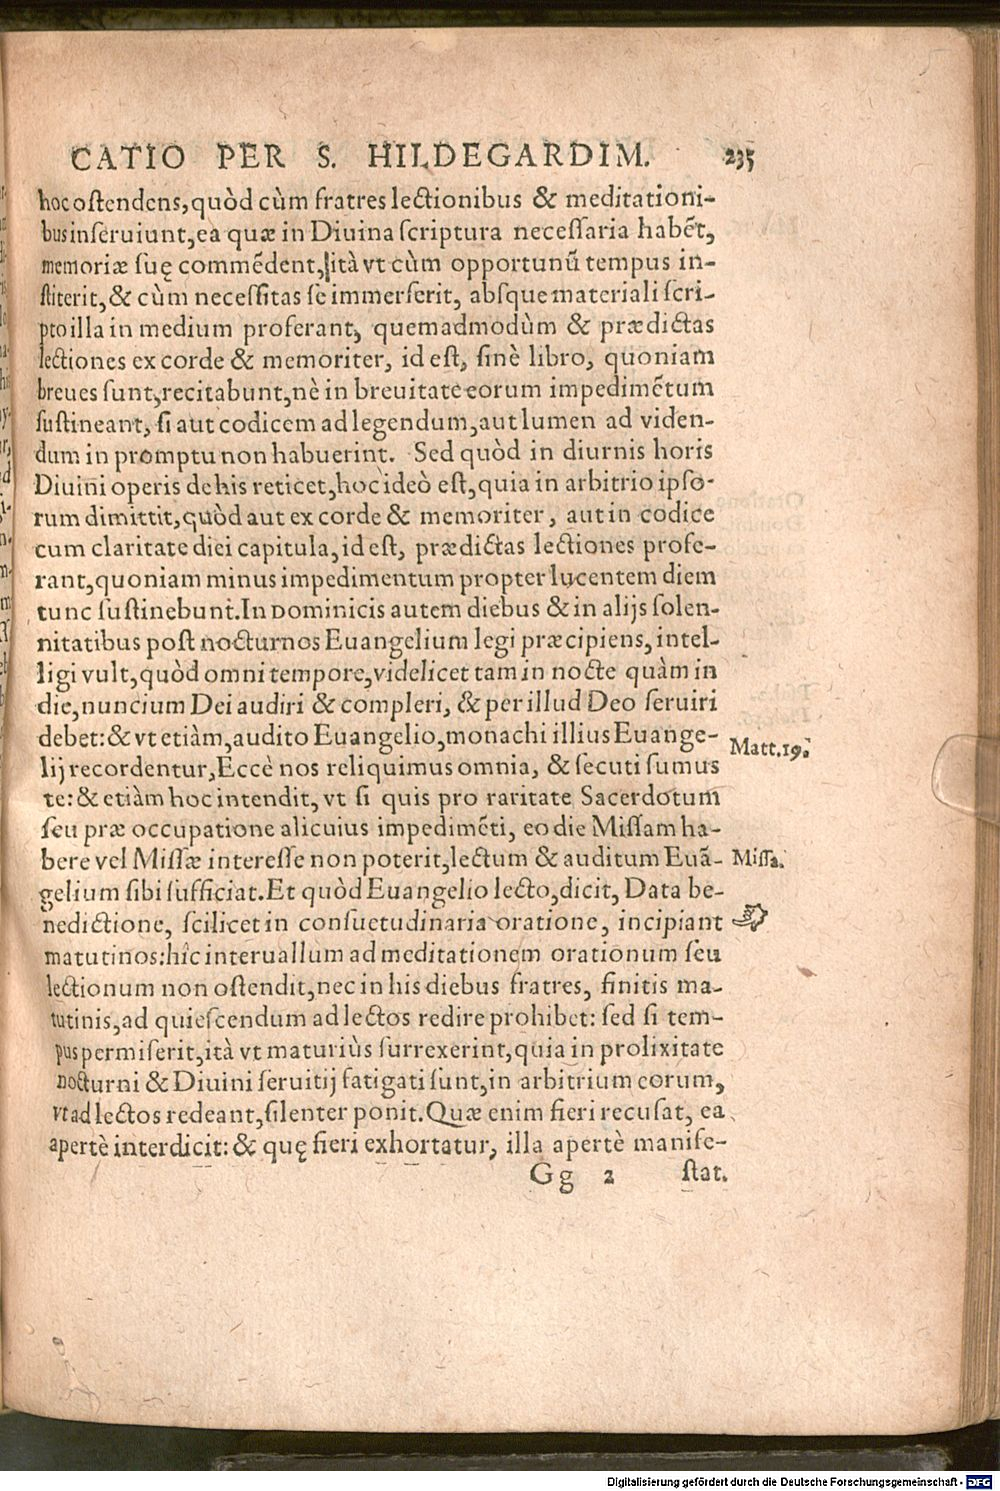 CATIO PER S. HILDEGARDIM. 235
hoc oſtendens, quòd cùm fratres lectionibus & meditationi-
bus inſeruiunt, ea quæ in Diuina ſcriptura neceſſaria habẽt,
memoriæ ſuę commẽdent, ità vt cùm opportunũ tempus in-
ſtiterit, & cùm neceſſitas ſe immerſerit, abſque materiali ſcri-
pto illa in medium proferant, quemadmodùm & prædictas
lectiones ex corde & memoriter, id eſt, ſinè libro, quoniam
breues ſunt, recitabunt, nè in breuitate eorum impedimẽtum
ſuſtineant, ſi aut codicem ad legendum, aut lumen ad viden-
dum in promptu non habuerint. Sed quòd in diurnis horis
Diuini operis de his reticet, hoc ideò eſt, quia in arbitrio ipſo-
rum dimittit, quòd aut ex corde & memoriter, aut in codice
cum claritate diei capitula, id eſt, prædictas lectiones profe-
rant, quoniam minus impedimentum propter lucentem diem
tunc ſuſtinebunt. In Dominicis autem diebus & in alijs ſolen-
nitatibus poſt nocturnos Euangelium legi præcipiens, intel-
ligi vult, quòd omni tempore, videlicet tam in nocte quàm in
die, nuncium Dei audiri & compleri, & per illud Deo ſeruiri
debet: & vt etiàm, audito Euangelio, monachi illius Euange-
lij recordentur, Eccè nos reliquimus omnia, & ſecuti ſumus
te: & etiàm hoc intendit, vt ſi quis pro raritate Sacerdotum
ſeu præ occupatione alicuius impedimẽti, eo die Miſſam ha-
bere vel Miſſæ intereſſe non poterit, lectum & auditum Euã-
gelium ſibi ſufficiat. Et quòd Euangelio lecto, dicit, Data be-
nedictione, ſcilicet in conſuetudinaria oratione, incipiant
matutinos: hîc interuallum ad meditationem orationum ſeu
lectionum non oſtendit, nec in his diebus fratres, finitis ma-
tutinis, ad quieſcendum ad lectos redire prohibet: ſed ſi tem-
pus permiſerit, ità vt maturiùs ſurrexerint, quia in prolixitate
nocturni & Diuini ſeruitij fatigati ſunt, in arbitrium eorum,
vt ad lectos redeant, ſilenter ponit. Quæ enim fieri recuſat, ea
apertè interdicit: & quę fieri exhortatur, illa apertè manife-
Gg 2 ſtat.
Matt. 19.
Miſſa.
Digitalisierung gefördert durch die Deutsche Forschungsgemeinschaft - DFG